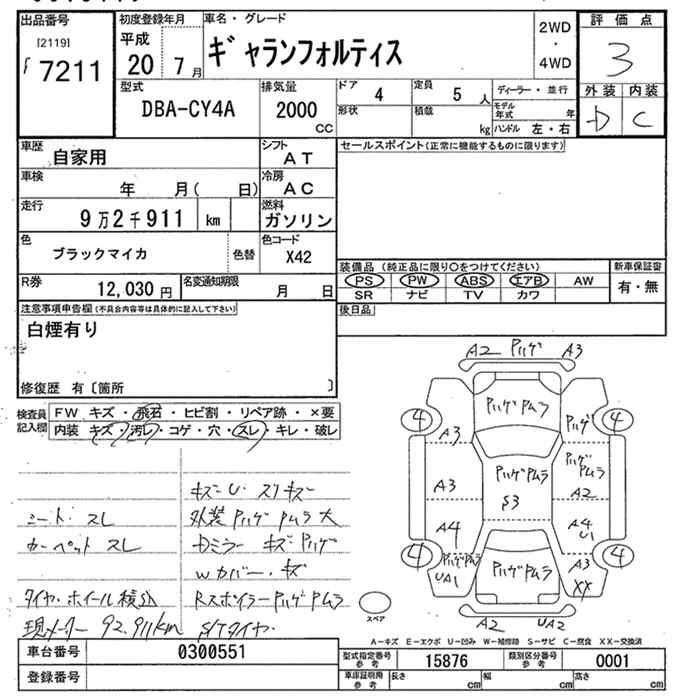 出品番号 初度登録年月 車名・グレード 2WD・4WD 評価点
[2119] 平成 ギャランフォルティス 3
7211 20 7月
型式 排気量 ドア 4 定員 5人 ディーラー・並行 外装 内装
DBA-CY4A 2000cc 形状 積載 kg モデル年式 年 D C
ハンドル 左・右
車歴 自家用 シフト AT セールスポイント(正常に機能するものに限ります)
車検 年 月( 日) 冷房 AC
走行 9万2千911 km 燃料 ガソリン
色 ブラックマイカ 色替 色コード X42
装備品(純正品に限り○をつけてください) 新車保証書
R券 12,030円 名変通知期限 月 日 PS PW ABS エアB AW 有・無
SR ナビ TV カワ
注意事項申告欄(不具合内容等は具体的に記入して下さい) 後日品
白煙有り
修復歴 有〔箇所 〕
検査員記入欄 FW キズ・飛石・ヒビ割・リペア跡・×要
内装 キズ・汚レ・コゲ・穴・スレ・キレ・破レ
キズ・U・スリキズ
シート・スレ 外装ハゲムラ大
カーペットスレ Dミラー キズ ハゲ
Wカバー・キズ
タイヤ・ホイール積込 Rスポイラーハゲムラ
現メーター 92,911km S/Tタイヤ
A2 ハゲ A3
ハゲムラ
4 ハゲ 4
A3
ハゲムラ ハゲムラ
A3 S3 A2
A4 A4 U1
4 ハゲムラ UA1 ハゲムラ A3 XX 4
スペア A2 UA2
A-キズ E-エクボ U-凹み W-補修跡 S-サビ C-腐食 XX-交換済
車台番号 0300551 型式指定番号 参考 15876 類別区分番号 参考 0001
登録番号 車庫証明用 参考 長さ cm 幅 cm 高さ cm